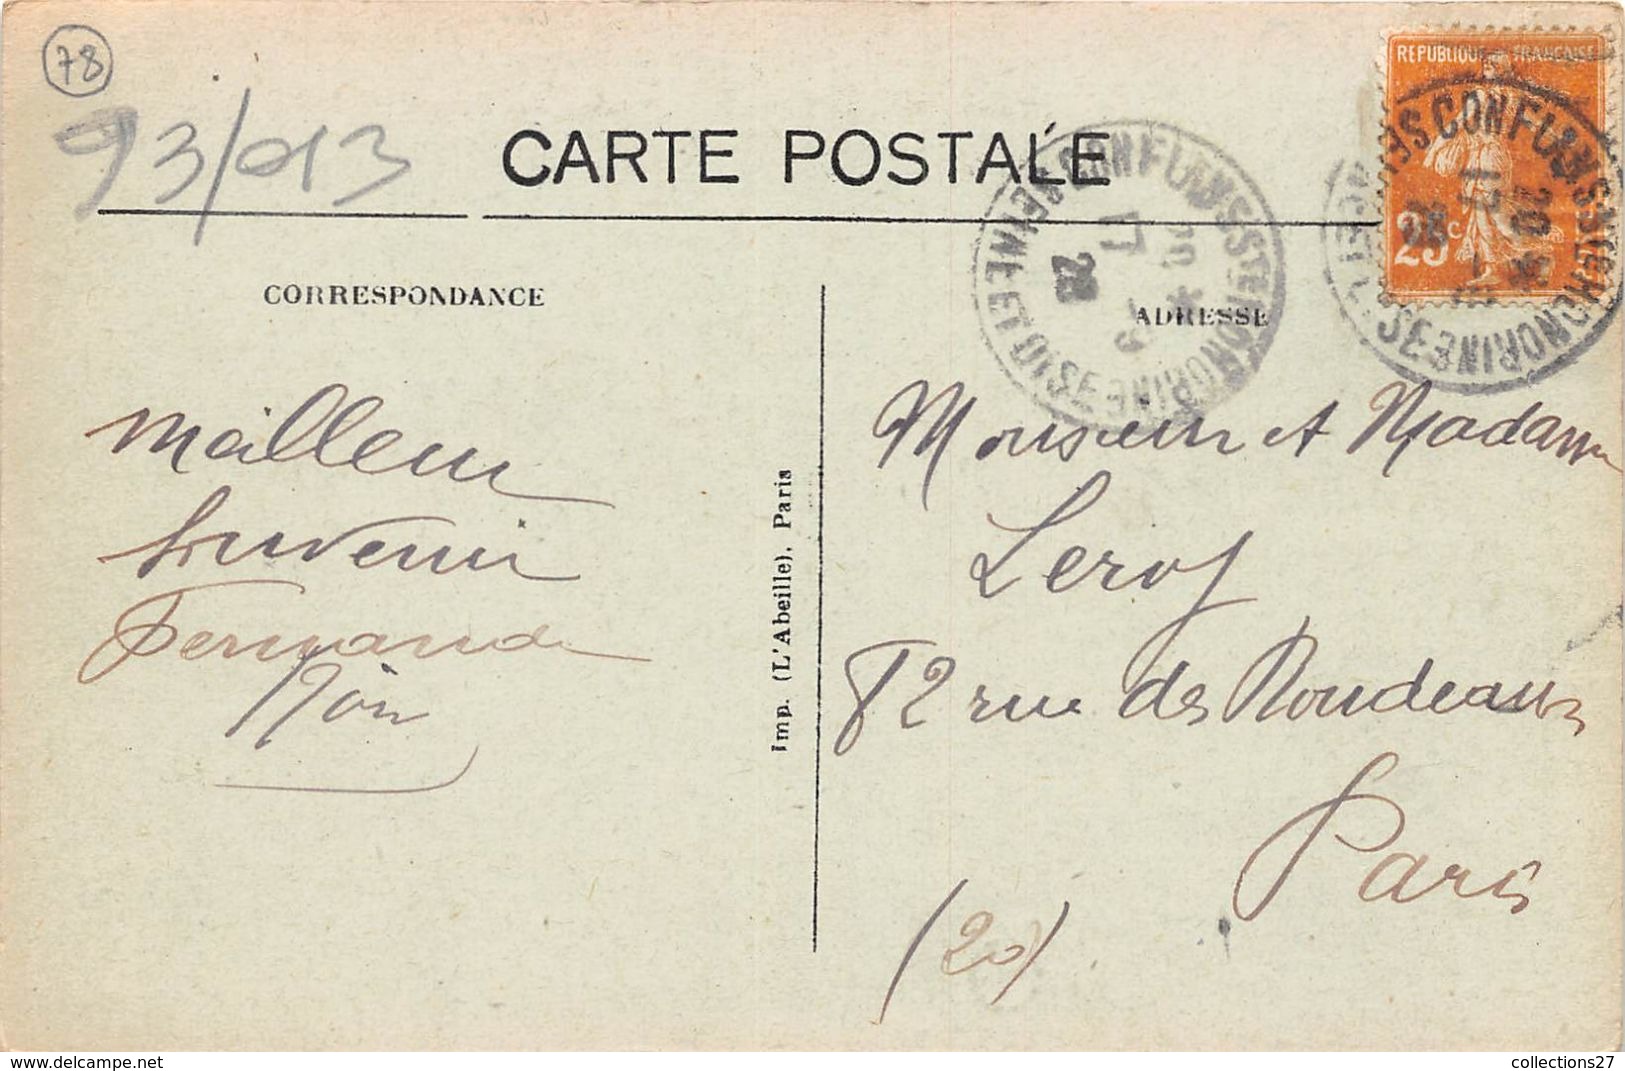 78
93/013
CARTE POSTALE
REPUBLIQUE FRANCAISE
25c
CONFLANS STE HONORINE
SEINE ET OISE
20 *
17
28
CORRESPONDANCE
ADRESSE
Meilleur
Souvenir
Fernande
Imp. (L'Abeille), Paris
Monsieur et Madame
Leroy
82 rue des Rondeaux
Paris
(20)
collections27